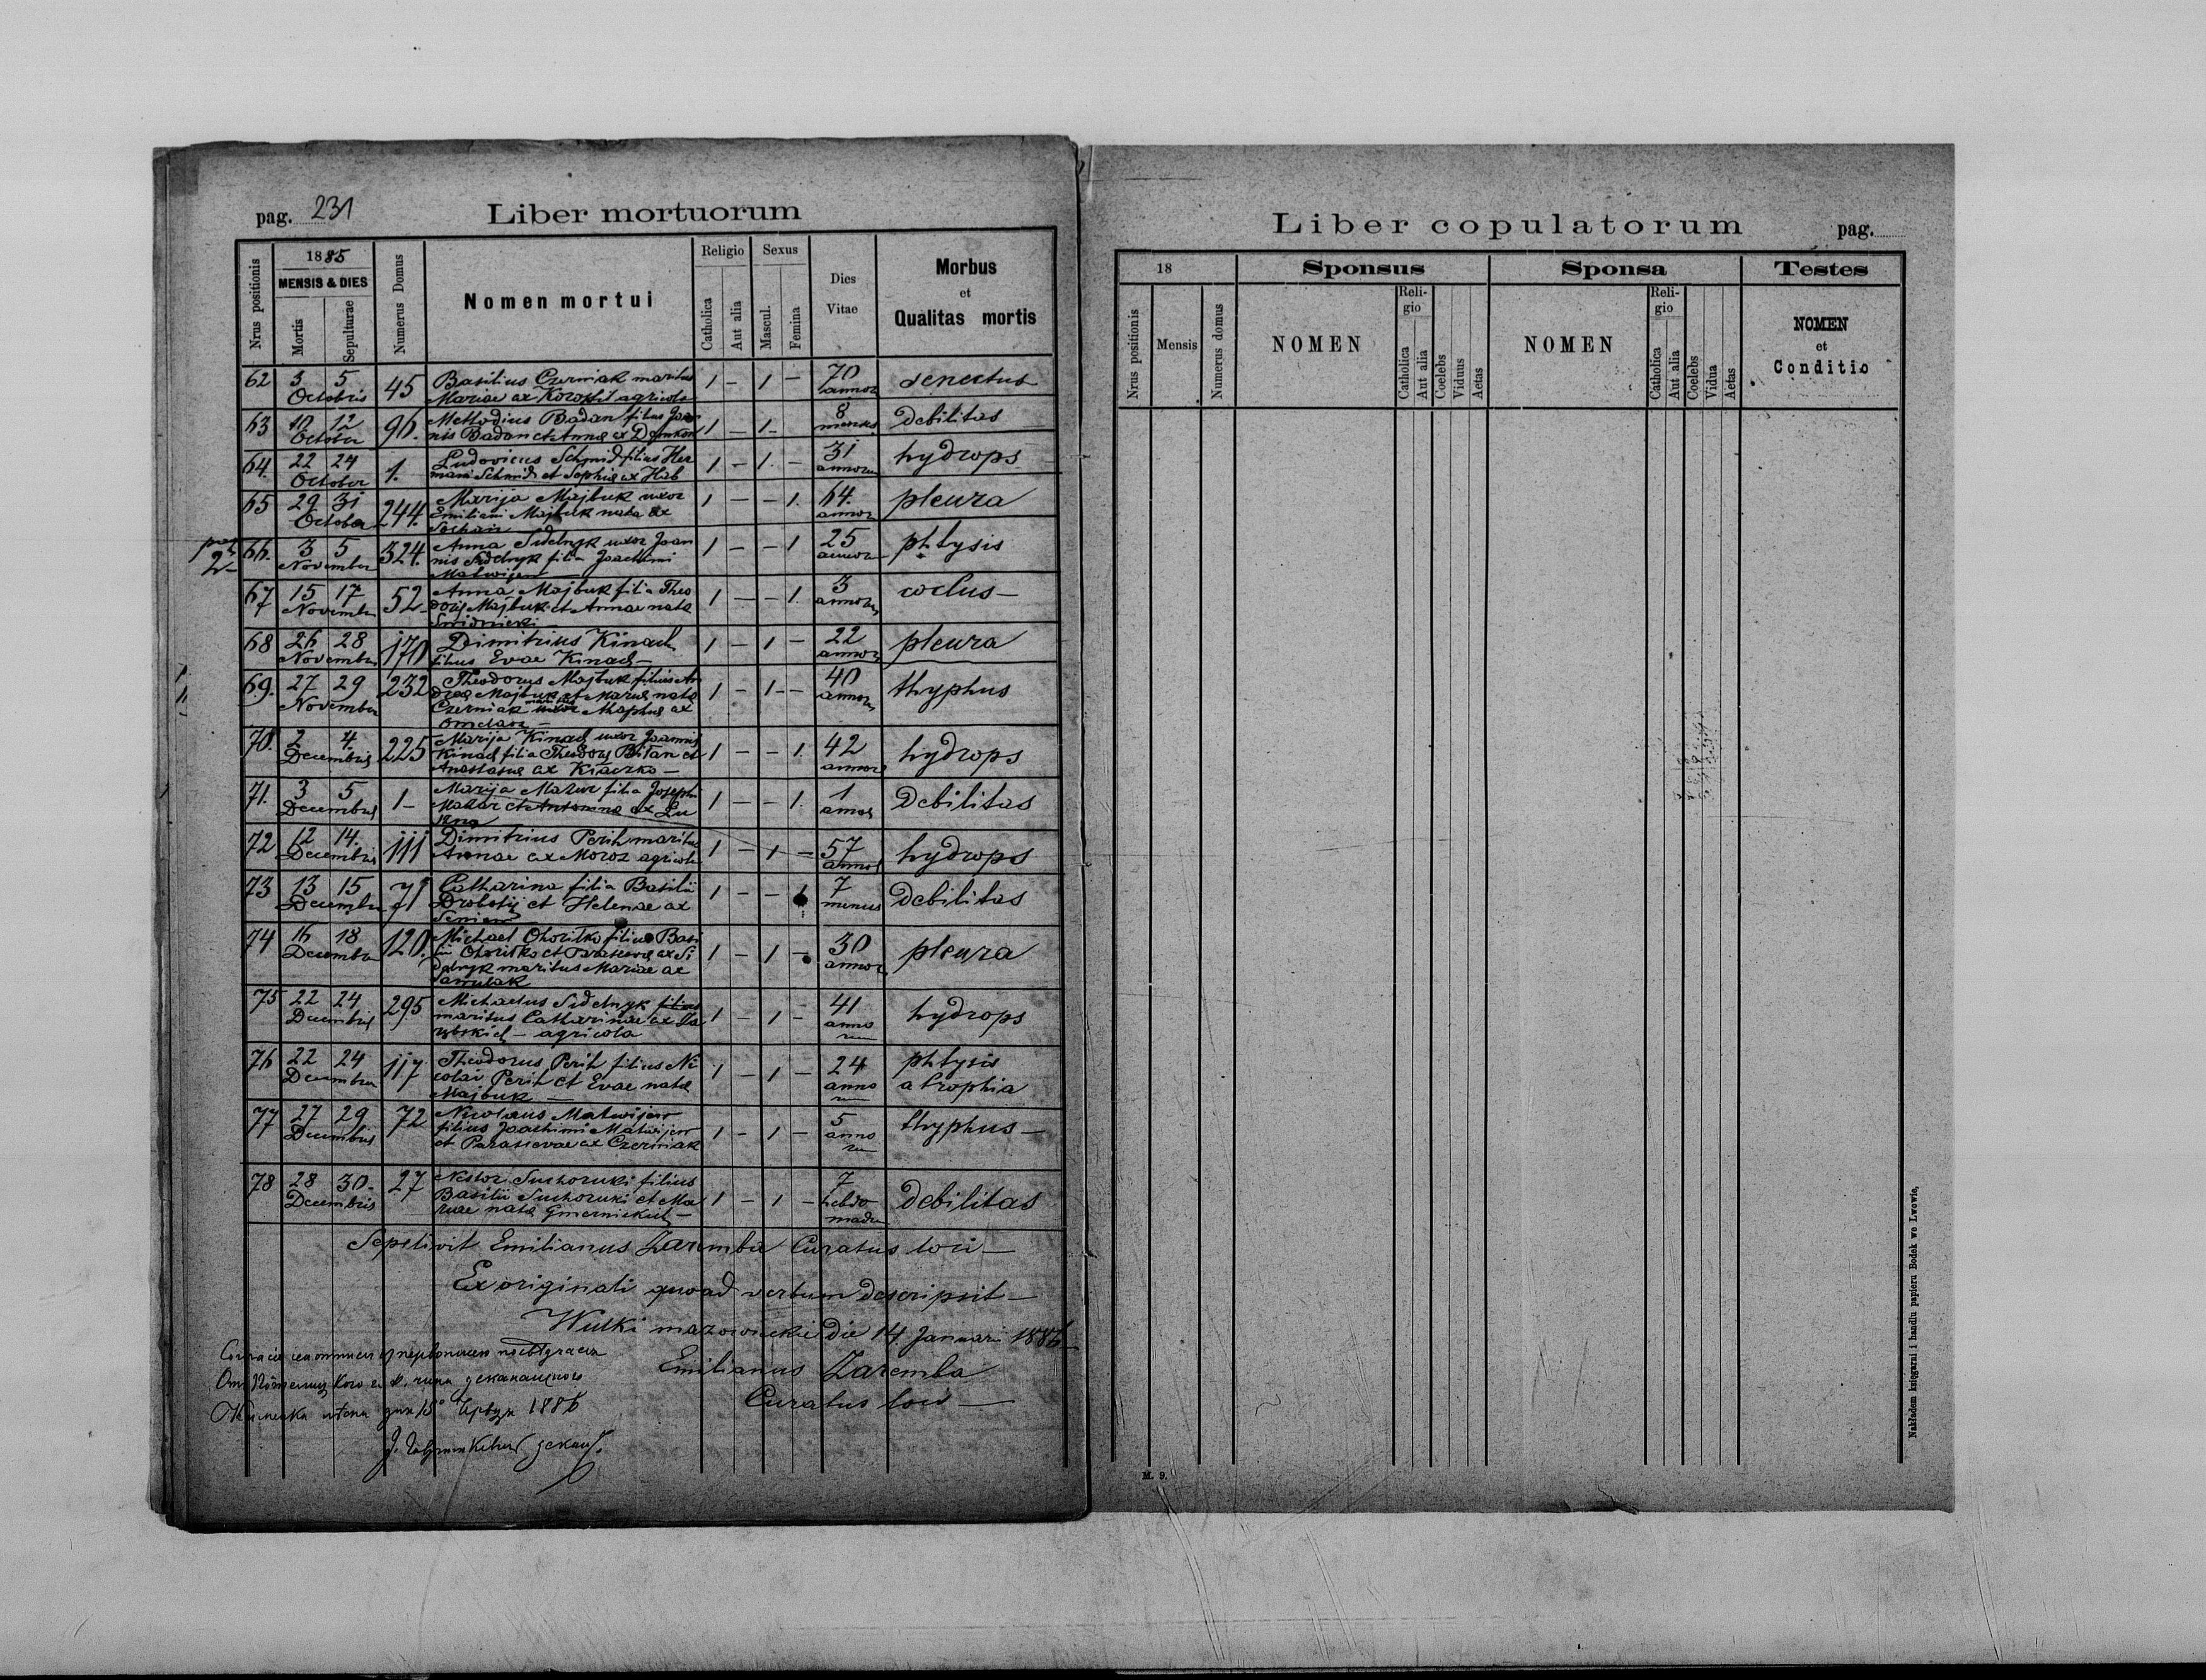 pag. 231 Liber mortuorum
Nrus positionis
1885
MENSIS & DIES
Mortis
Sepulturae
Numerus Domus
Nomen mortui
Religio
Catholica
Aut alia
Sexus
Mascul.
Femina
Dies
Vitae
Morbus
et
Qualitas mortis
62 3 5 45 Basilius Czerniak maritus 1 – 1 – 70 senectus
Octobris Mariae ex agricola annor
63 10 12 96. Methodius Badan filius Joan 1 – 1 – 8 debilitas
October nis Badan et Annae ex menses
64. 22 24 1. Ludovicus Schmid filius Her 1 – 1. – 31 hydrops
October mani Schmid et Sophiae ex Hab annorum
65 29 31 244. Marija Majbuk uxor 1 – – 1. 64. pleura
October Emiliani Majbuk nata ex annor
Sochan
pag
2 –
66. 3 5 324. Anna Sidelnyk uxor Joan 1 – – 1 25 phtysis
November nis Sidelnyk filia Joachimi annor
Matwijew
67 15 17 52 – Anna Majbuk filia Theo 1 – – 1. 3 coclus –
Novembr dory Majbuk et Annae nata annor
68 26 28 170 Dimitrius Kinach 1 – 1 – 22 pleura
Novembr filius Evae Kinach – annor
69. 27 29 232 Theodorus Majbuk filius An 1 – 1 – – 40 thyphus
November dreae Majbuk et Mariae nata annor
Czerniak uxor maritus Maphtae ex
Omelan –
70. 2 4. 225 Marija Kinach uxor Joannis 1 – – 1. 42 hydrops
Decembris Kinach filia Theodory Bilan et annor
Anastasiae ex Kraczko –
71. 3 5 1 – Marija Mazur filia Josephi 1 – – 1. 1 Debilitas
Decembris Mazur et Antonina ex Lu
72 12 14. 111 Dimitrius Perih maritus 1 – 1 – 57 hydrops
Decembris Annae ex Moroz agricola annor
73 13 15 71 Catharina filia Basilii 1 – – 1 7 Debilitas
Decembr Drobotij et Helenae ex menses
Seniow
74 16 18 120. Michael Ohoritko filius Basi 1 – 1 – 30 pleura
Decembr lii Ohoritko et Parascevae ex Si annor
delnyk maritus Mariae ex
75 22 24 295 Michaelus Sidelnyk filius 1 – 1 – 41 hydrops
Decembris maritus Catharinae ex Za anno
rybskich – agricola rum
76 22 24 117 Theodorus Perih filius Ni 1 – 1 – 24 phtysis
Decembr colai Perih et Evae nata anno atrophia
Majbuk – rum
77 27 29 72 Nicolaus Matwijew 1 – 1 – 5 thyphus –
Decembris filius Joachimi Matwijew anno
et Parascevae ex Czerniak rum
78 28 30 – 27 Nestor Suchoruki filius 1 – 1 – 7 Debilitas
Decembris Basilii Suchoruki et Ma hebdo
riae nata Gmernickich – madum
Sepelivit Emilianus Zaremba Curatus loci –
Ex originali quoad verbum descripsit –
Wulki mazowieckie die 14 Januari 1886
Emilianus Zaremba
Curatus loci –
1886
Liber copulatorum pag.
18
Nrus positionis
Mensis
Numerus domus
Sponsus
NOMEN
Religio
Catholica
Aut alia
Coelebs
Viduus
Aetas
Sponsa
NOMEN
Religio
Catholica
Aut alia
Coelebs
Vidua
Aetas
Testes
NOMEN
et
Conditio
M. 9.
Nakładem księgarni i handlu papieru Bodek we Lwowie,